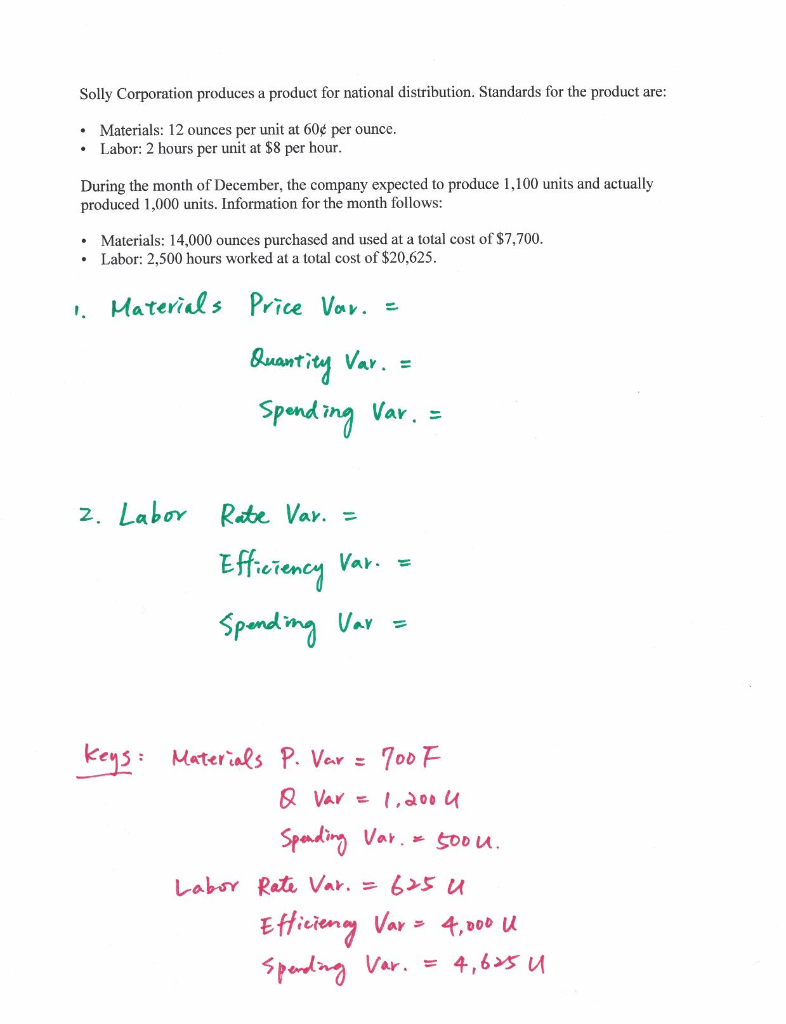 Solly Corporation produces a product for national distribution. Standards for the product are:
• Materials: 12 ounces per unit at 60¢ per ounce.
• Labor: 2 hours per unit at $8 per hour.
During the month of December, the company expected to produce 1,100 units and actually
produced 1,000 units. Information for the month follows:
• Materials: 14,000 ounces purchased and used at a total cost of $7,700.
• Labor: 2,500 hours worked at a total cost of $20,625.
1. Materials Price Var. =
Quantity Var. =
Spending Var. =
2. Labor Rate Var. =
Efficiency Var. =
Spending Var =
Keys: Materials P. Var = 700 F
Q Var = 1,200 U
Spending Var. = 500 U.
Labor Rate Var. = 625 U
Efficiency Var = 4,000 U
Spending Var. = 4,625 U